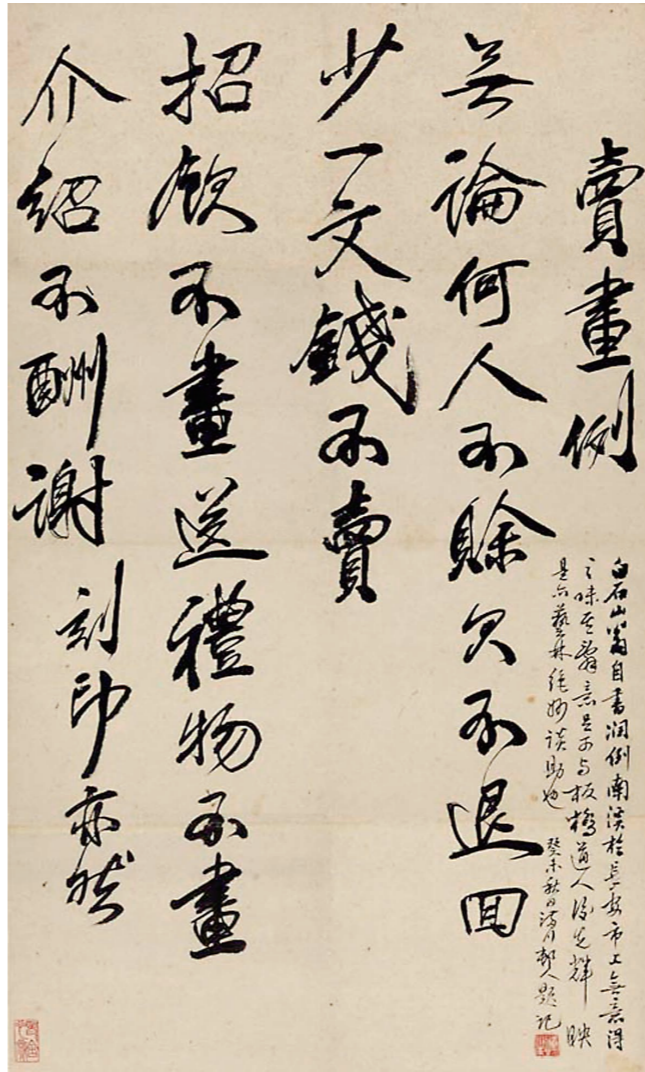 賣畫例
無論何人不賒欠不退回
少一文錢不賣
招飲不畫送禮物不畫
介紹不酬謝
刻印亦然
白石山翁自書润例南溟於長安市上無意得
之味其辭意足可与板橋道人後先輝映
是亦藝林绝妙談助也
癸未秋日 邨人題记